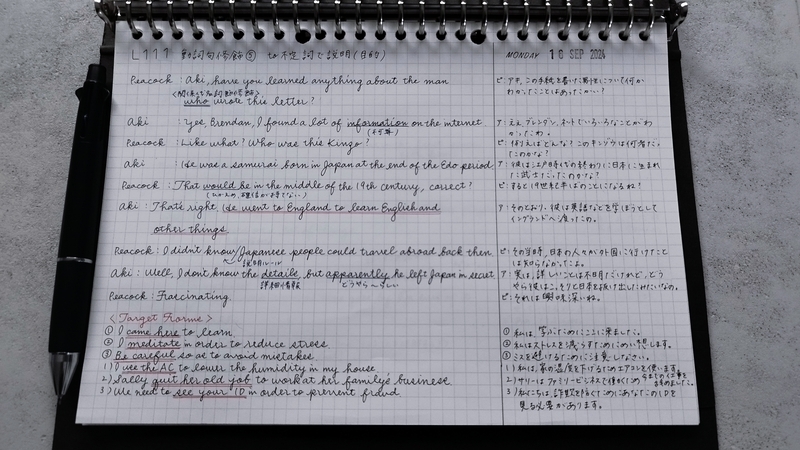 L111 動詞句修飾⑤ to不定詞で説明(目的)
MONDAY 16 SEP 2024
Peacock : Aki, have you learned anything about the man
who wrote this letter?
Aki : Yes, Brendan, I found a lot of information on the internet.
(不可算)
Peacock : Like what? Who was this Kingo?
Aki : He was a samurai born in Japan at the end of the Edo period.
Peacock : That would be in the middle of the 19th century, correct?
Aki : That's right. He went to England to learn English and
other things.
Peacock : I didn't know Japanese people could travel abroad back then.
説明ルール
Aki : Well, I don't know the details, but apparently he left Japan in secret.
詳細情報 どうやら〜らしい
Peacock : Frascinating.
<Target Forms>
① I came here to learn.
② I meditate in order to reduce stress.
③ Be careful so as to avoid mistakes.
1) I use the AC to lower the humidity in my house.
2) Sally quit her old job to work at her family's business.
3) We need to see your ID in order to prevent fraud.
ピ : アキ、この手紙を書いた男性について何か
わかったことはあったかい?
ア : ええ、ブレンダン、ネットでいろいろなことがわ
かったわ。
ピ : 例えばどんな? このキンゴウは何者だっ
たのかな?
ア : 彼は江戸時代の終わりに日本に生まれ
た武士だったのかな?
ピ : すると19世紀半ばのことになるね?
ア : そのとおり、彼は英語などを学ぼうとして
イングランドへ渡ったの。
ピ : その当時、日本の人々が外国に行けたこと
は知らなかったよ。
ア : 実は、詳しいことは不明だけれど、どう
やら彼はこっそりと日本を抜け出したみたいなの。
ピ : それは興味深いね。
① 私は、学ぶためにここに来ました。
② 私はストレスを減らすためにめい想します。
③ ミスを避けるために注意しなさい。
1) 私は、家の湿度を下げるためエアコンを使います。
2) サリーはファミリービジネスで働くため
3) 私たちは、詐欺を防ぐためにあなたのIDを
見る必要があります。